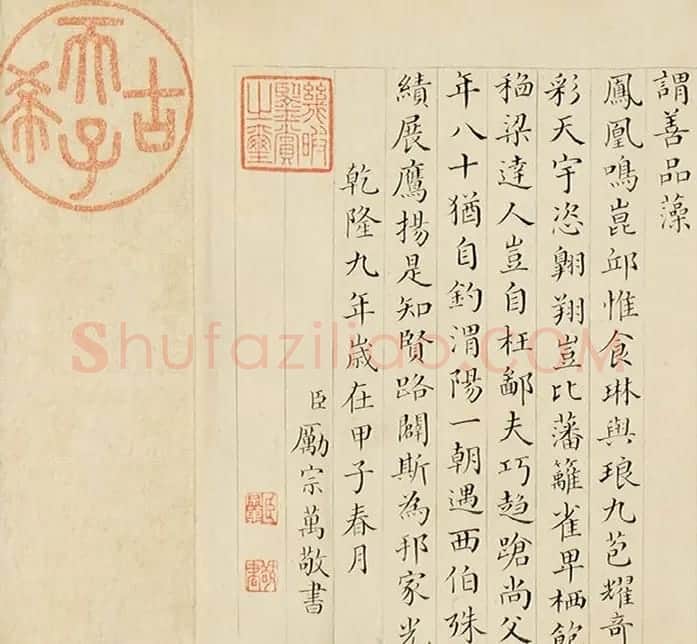 謂善品藻
鳳凰鳴崑邱惟食琳與琅九苞耀奇
彩天宇恣翱翔豈比藩籬雀卑栖飽
稻梁達人豈自枉鄙夫巧趨蹌尚父
年八十猶自釣渭陽一朝遇西伯殊
績展鷹揚是知賢路闢斯為邦家光
乾隆九年歲在甲子春月
臣勵宗萬敬書
幾暇鑒賞之璽
古希天子
Shufaziliao.COM